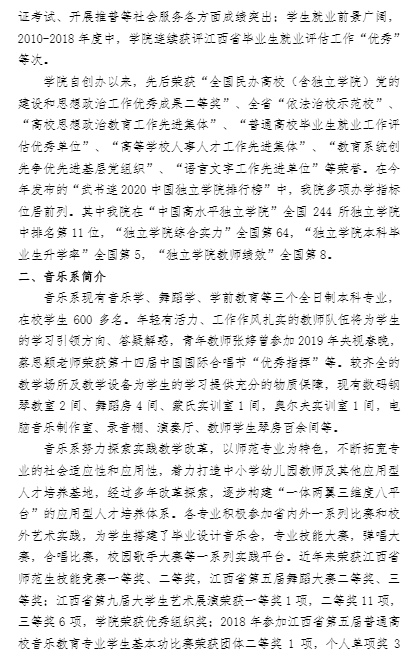 证考试、开展推普等社会服务各方面成绩突出；学生就业前景广阔，
2010-2018 年度中，学院连续获评江西省毕业生就业评估工作“优秀”
等次。
学院自创办以来，先后荣获“全国民办高校（含独立学院）党的
建设和思想政治工作优秀成果二等奖”、全省“依法治校示范校”、
“高校思想政治教育工作先进集体”、“普通高校毕业生就业工作评
估优秀单位”、“高等学校人事人才工作先进集体”、“教育系统创
先争优先进基层党组织”、“语言文字工作先进单位”等荣誉。在今
年发布的“武书连 2020 中国独立学院排行榜”中，我院多项办学指标
位居前列。其中我院在“中国高水平独立学院”全国 244 所独立学院
中排名第 11 位，“独立学院综合实力”全国第 64，“独立学院本科毕
业生升学率”全国第 5，“独立学院教师绩效”全国第 8。
二、音乐系简介
音乐系现有音乐学、舞蹈学、学前教育等三个全日制本科专业，
在校学生 600 多名。年轻有活力、工作作风扎实的教师队伍将为学生
的学习引领方向、答疑解惑，青年教师张婷曾参加 2019 年央视春晚，
蔡思颖老师荣获第十四届中国国际合唱节“优秀指挥”等。较齐全的
教学场所及教学设备为学生的学习提供充分的物质保障，现有数码钢
琴教室 2 间、舞蹈房 4 间、蒙氏实训室 1 间，奥尔夫实训室 1 间，电
脑音乐制作室、录音棚、演奏厅、教师学生琴房百余间等。
音乐系努力探索实践教学改革，以师范专业为特色，不断拓宽专
业的社会适应性和应用性，着力打造中小学幼儿园教师及其他应用型
人才培养基地，经过多年改革探索，逐步构建“一体两翼三维度八平
台”的应用型人才培养体系。各专业积极参加省内外一系列比赛和校
外艺术实践，为学生搭建了毕业设计音乐会，专业技能大赛，弹唱大
赛，合唱比赛，校园歌手大赛等一系列实践平台。近年来荣获江西省
师范生技能竞赛一等奖、二等奖，江西省第五届舞蹈大赛二等奖、三
等奖；江西省第九届大学生艺术展演荣获一等奖 1 项，二等奖 11 项，
三等奖 6 项，学院荣获优秀组织奖；2018 年参加江西省第五届普通高
校音乐教育专业学生基本功比赛荣获团体二等奖 1 项，个人单项奖 3